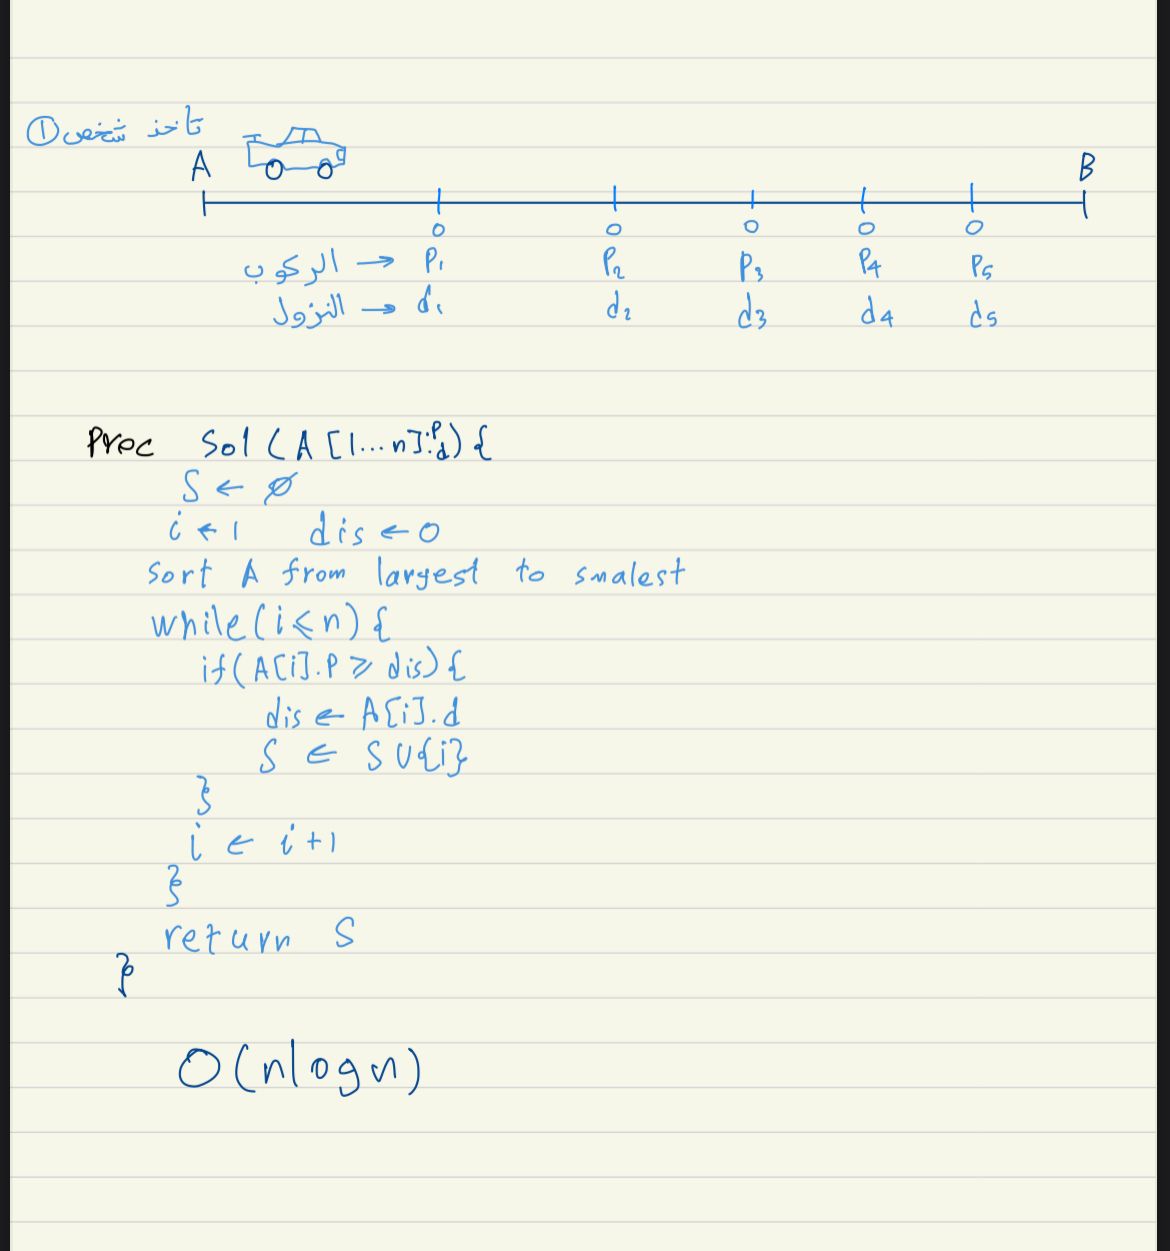 ① تاخذ شخص
A B
الركوب → P₁ P₂ P₃ P₄ P₅
النزول → d₁ d₂ d₃ d₄ d₅
Prec Sol (A [1...n]:P d) {
S ← ∅
i ← 1 dis ← 0
Sort A from largest to smalest
while (i ≤ n) {
if (A[i].P ≥ dis) {
dis ← A[i].d
S ← S ∪ {i}
}
i ← i + 1
}
return S
}
O(nlogn)